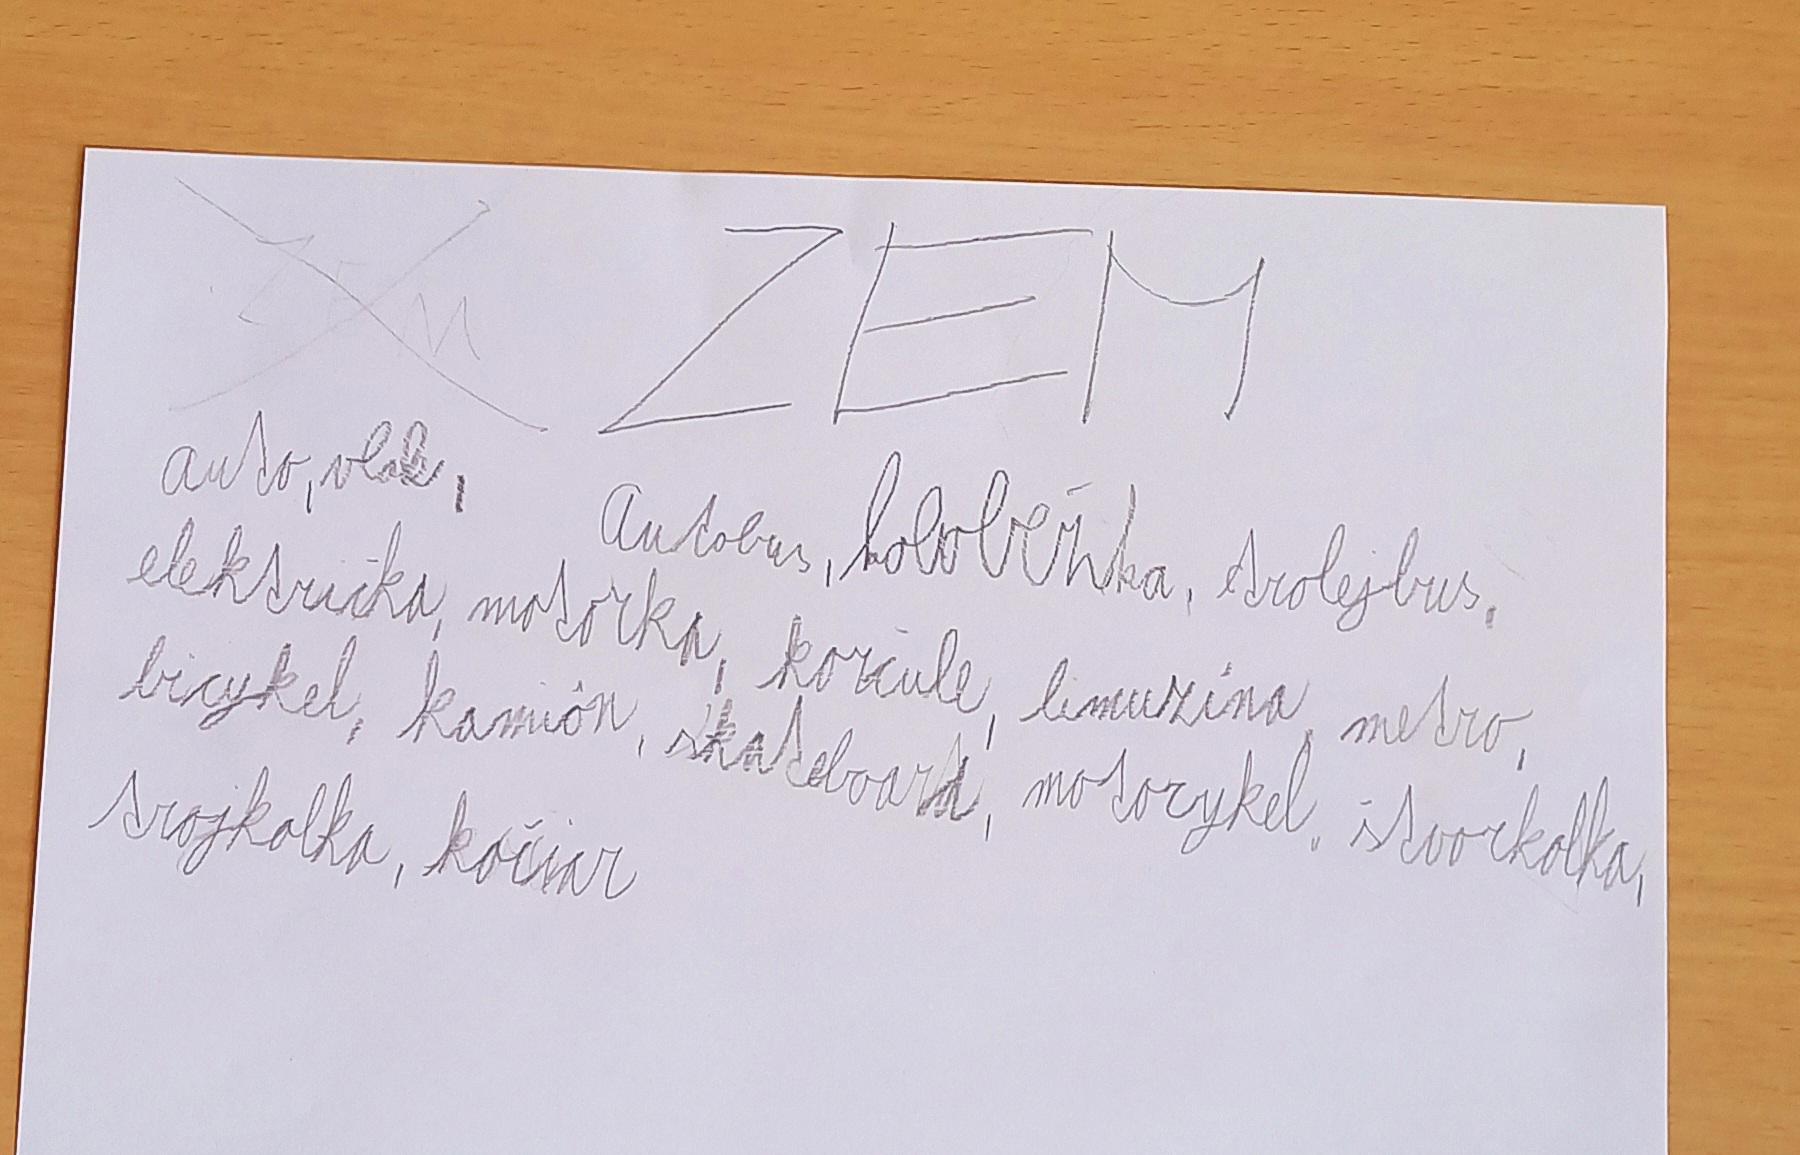 ZEM
ZEM
auto, vlak, Autobus, kolobežka, trolejbus,
električka, motorka, korčule, limuzína, metro,
bicykel, kamión, skateboard, motorycykel, štvorkolka,
trojkolka, kočiar